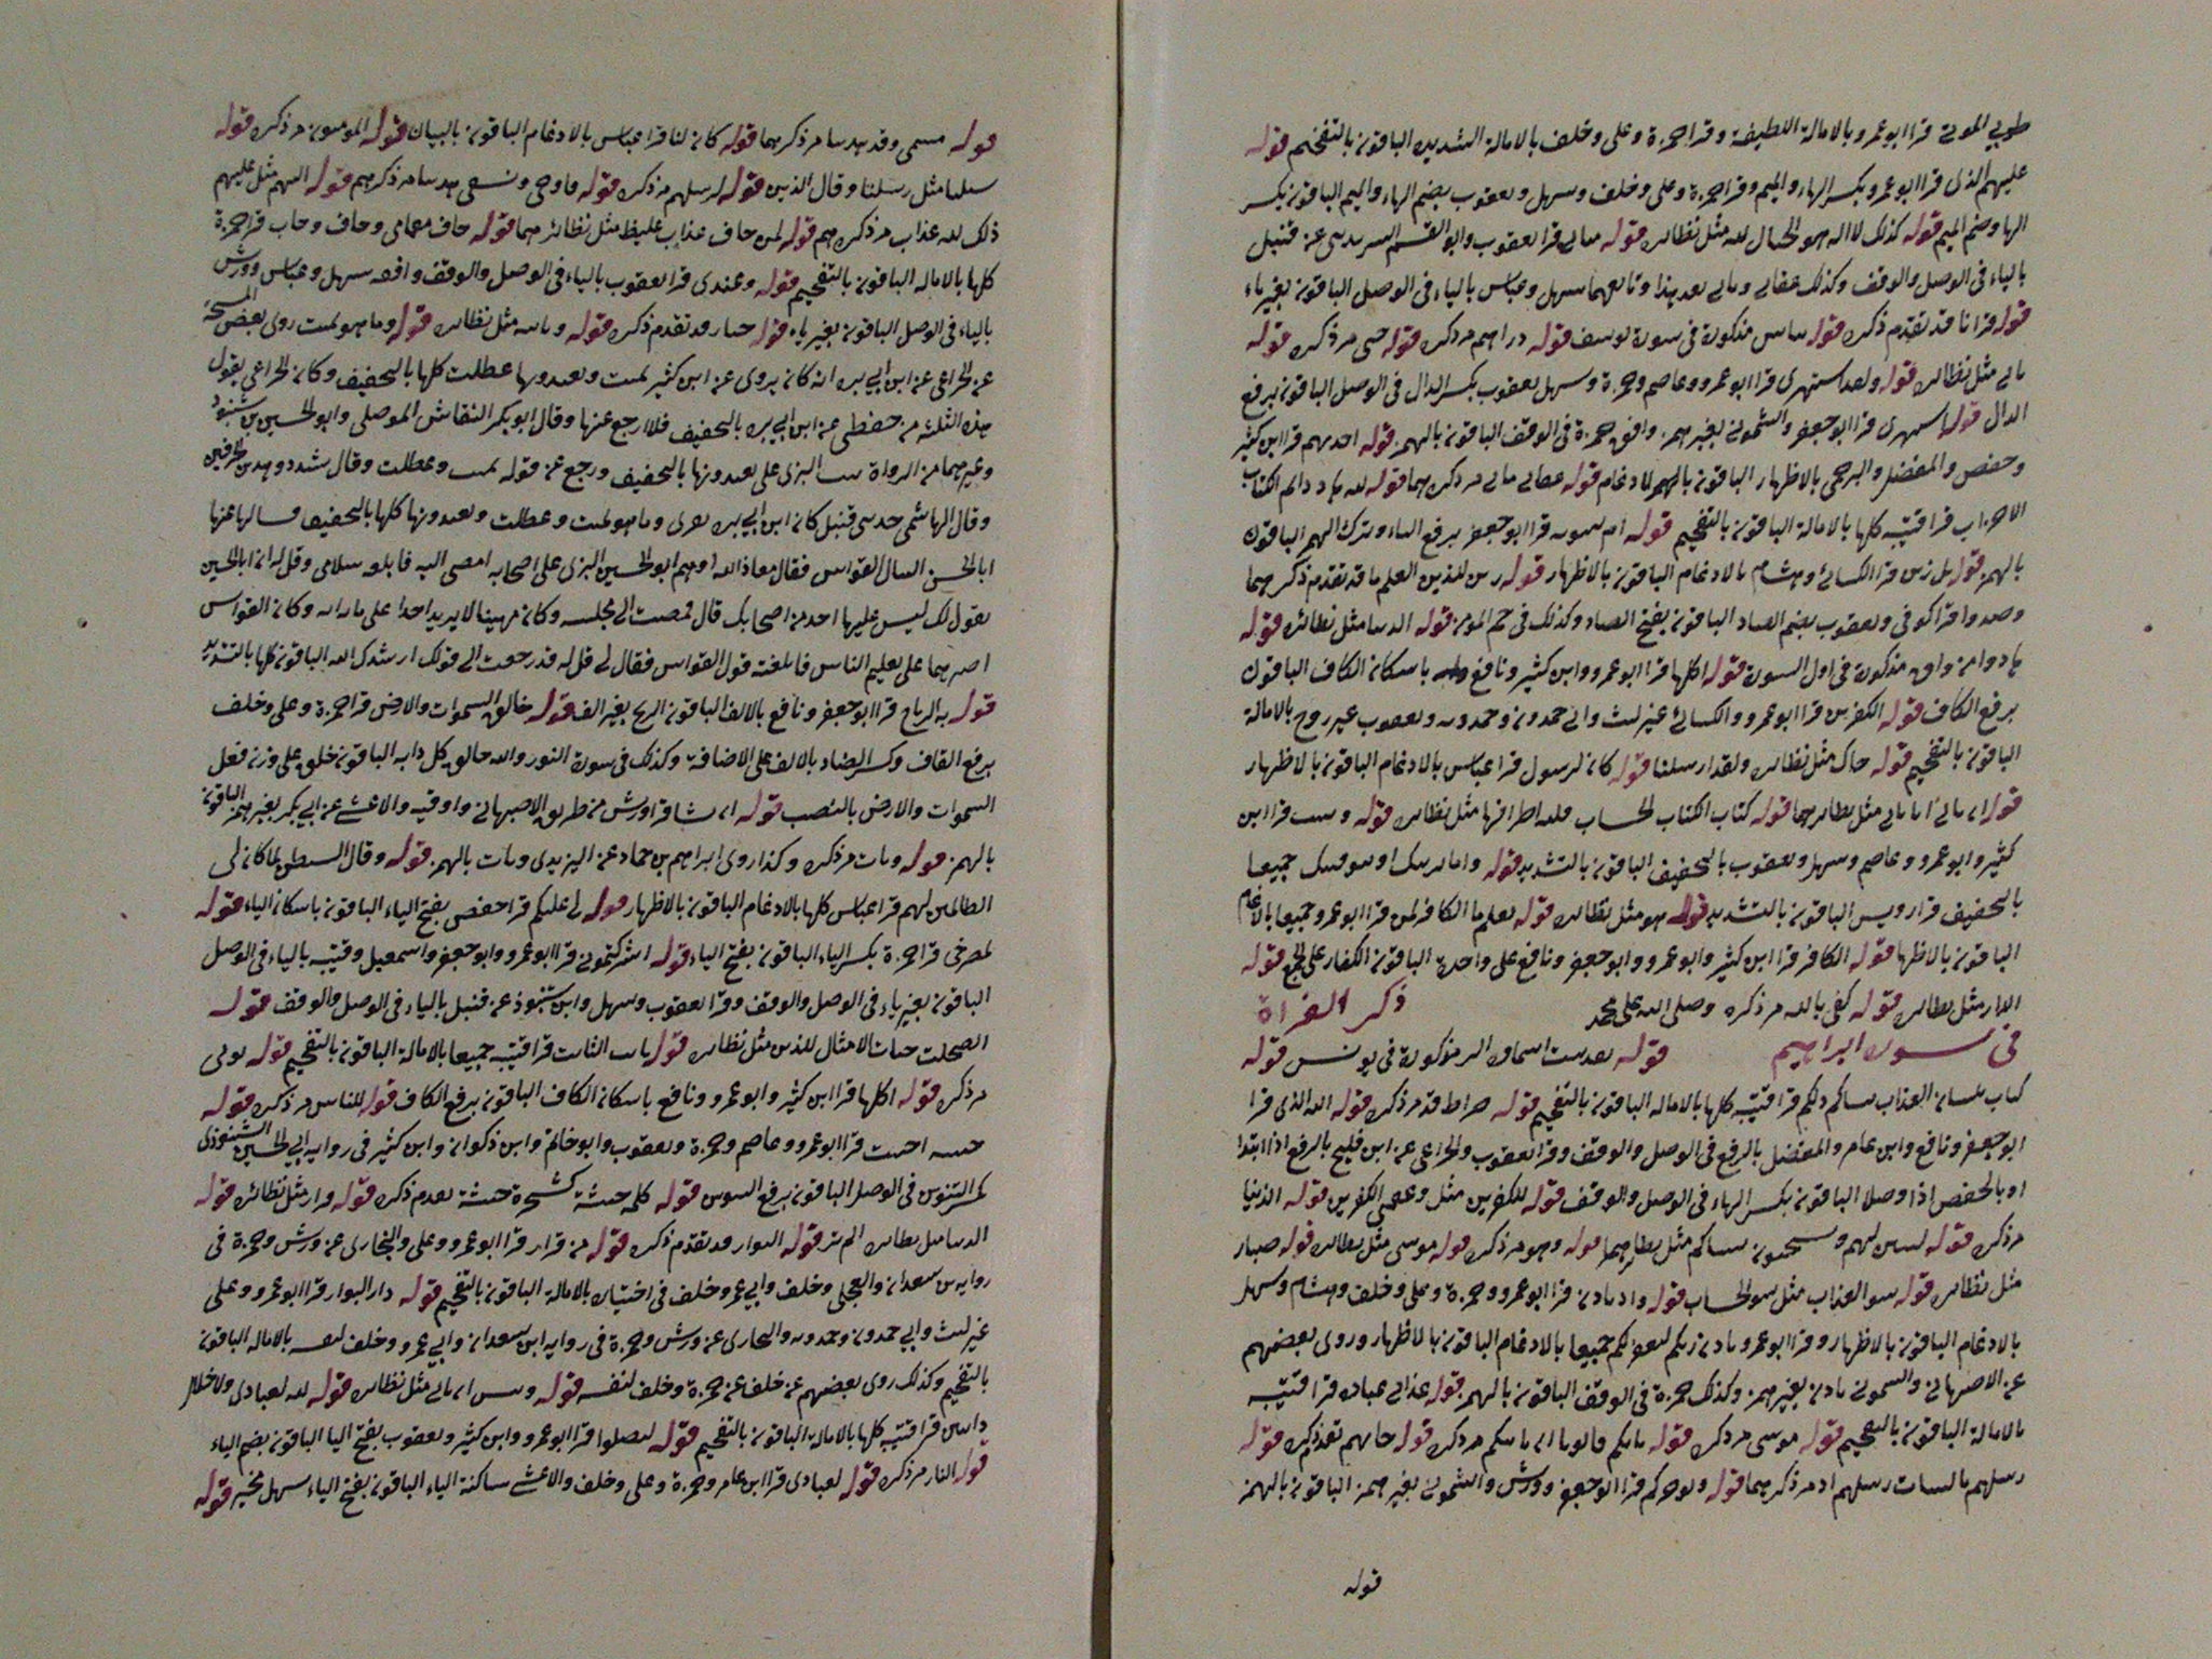 طوبى الموتى قرا ابو عمرو بالامالة اللطيفة وقرا حمزة وعلى وخلف بالامالة الشديدة الباقون بالتفخيم قوله
عليهم الذى قرا ابو عمرو بكسر الهاء والميم وقرا حمزة وعلى وخلف وسهل ويعقوب بضم الهاء والميم الباقون بكسر
الها وضم الميم قوله كذلك لا اله هو الحبال لله مثل نظائره قوله متاب قرا يعقوب وابو القسم عن قنبل
بالياء فى الوصل والوقف وكذلك عقابى ومابى بعد هذا وتابعهما سهل وعباس بالياء فى الوصل الباقون بغير ياء
قوله قرانا قد تقدم ذكره قوله مذكورة فى سورة يوسف قوله دراهم مر ذكره قوله حتى مر ذكره قوله
مثل نظائره قوله ولقد استهزى قرا ابو عمرو وعاصم وحمزة وسهل يعقوب بكسر الدال فى الوصل الباقون برفع
الدال قوله استهزى قرا ابو جعفر والشمونى بغير همز وافق حمزة فى الوقف الباقون بالهمز قوله اخذتهم قرا ابن كثير
وحفص والمفضل والبرجمى بالاظهار الباقون بالادغام قوله مر ذكرهما قوله
الاحزاب قرا قتيبة كلها بالامالة الباقون بالتفخيم قوله ام تنبونه قرا ابو جعفر برفع الباء وترك الهمز الباقون
بالهمز قوله بل زين قرا الكسائى وهشام بالادغام الباقون بالاظهار قوله زين للذين العلم ما قد تقدم ذكرهما
وصدوا قرا كوفى ويعقوب بضم الصاد الباقون بفتح الصاد وكذلك فى حم المومن قوله الدنيا مثل نظائره قوله
هادوا من واق مذكورة فى اول السورة قوله اكلها قرا ابو عمرو وابن كثير ونافع باسكان الكاف الباقون
برفع الكاف قوله الكفرين قرا ابو عمرو والكسائى غير ليث وابى حمدون وحمدويه ويعقوب غير روح بالامالة
الباقون بالتفخيم قوله جاك مثل نظائره ولقد ارسلنا قوله كان لرسول قرا عباس بالادغام الباقون بالاظهار
قوله مثل نظائرهما قوله كتاب الكتاب الحساب اطرافها مثل نظائره قوله ويثبت قرا ابن
كثير وابو عمرو وعاصم وسهل ويعقوب بالتخفيف الباقون بالتشديد قوله واما نرينك او نتوفينك جميعا
بالتخفيف قرا رويس الباقون بالتشديد قوله هو مثل نظائره قوله يعلم ما الكافر لمن قرا ابو عمرو جميعا بالادغام
الباقون بالاظهار قوله الكافر قرا ابن كثير وابو عمرو وابو جعفر ونافع على واحدة الباقون الكفار على الجمع قوله
الدار مثل نظائره قوله كفى بالله مر ذكره وصلى الله على محمد ذكر القراة
فى سورة ابراهيم قوله الر مذكورة فى يونس قوله
كتاب بلسان العذاب نساكم ذلكم قرا قتيبة كلها بالاماله الباقون بالتفخيم قوله صراط قد مر ذكره قوله الله الذى قرا
ابو جعفر ونافع وابن عامر والمفضل بالرفع فى الوصل والوقف وقرا يعقوب والخزاعى عن ابن فليح بالرفع اذا ابتدا
او بالخفض اذا وصلا الباقون بكسر الهاء فى الوصل والوقف قوله للكفرين مثل وعقبى الكفرين قوله الدنيا
مر ذكره قوله ليبين لهم ويستحيون نساكم مثل نظائرهما قوله وهو مر ذكره قوله موسى مثل نظائره قوله صبار
مثل نظائره قوله سو العذاب مثل سو الحساب قوله واذ تاذن قرا ابو عمرو وحمزة وعلى وخلف وهشام وسهل
بالادغام الباقون بالاظهار وقرا ابو عمرو تاذن ربكم ليغفر لكم جميعا بالادغام الباقون بالاظهار وروى بعضهم
عن الاصبهانى والشمونى تاذن بغير همز وكذلك حمزة فى الوقف الباقون بالهمز قوله عذابى عباده قرا قتيبة
بالامالة الباقون بالتفخيم قوله موسى مر ذكره قوله ياتكم مر ذكره قوله جاتهم تقدم ذكره قوله
رسلهم بالبينات رسلهم مر ذكرهما قوله ويوخركم قرا ابو جعفر وورش والشمونى بغير همز الباقون بالهمز
قوله
قوله مسمى وقد هدينا مر ذكرهما قوله كان لنا قرا عباس بالادغام الباقون بالبيان قوله المومنون مر ذكره قوله
سبلنا مثل رسلنا وقال الذين قوله لرسلهم مر ذكره قوله فاوحى مر ذكرهم قوله اليهم مثل عليهم
ذلك لله عذاب مر ذكرهم قوله لمن خاف عذاب غليظ مثل نظائرهما قوله خاف مقامى وخاف وخاب قرا حمزة
كلها بالاماله الباقون بالتفخيم قوله وعيدى قرا يعقوب بالياء فى الوصل والوقف وافقه سهل وعباس وورش
بالياء فى الوصل الباقون بغير ياء قوله جبار قد تقدم ذكره قوله مثل نظائره قوله وما هو بميت روى بعض المشيخة
عن الخزاعى عن ابن ابى بزه انه كان يروى عن ابن كثير بميت وتعتدونها عطلت كلها بالتخفيف وكان الخزاعى يقول
هذه الثلثة من حفظى عن ابن ابى بزه بالتخفيف فلا ارجع عنها وقال ابو بكر النقاش الموصلى وابو الحسين بن شنبوذ
وغيرهما من الرواة البزى على تعتدونها بالتخفيف ورجع عن قوله بميت وعطلت وقال شدد وهذين الحرفين
وقال الهاشمى حدثنى قنبل كان ابن ابى بزه وما هو بميت وعطلت وتعتدونها كلها بالتخفيف فسالها عنها
ابا الحسن النبال القواس فقال معاذ الله اوهم ابو الحسين البزى على اصحابه امضى اليه فابلغه سلامى وقل له ان ابا الحسين
يقول لك ليس عليها احد من اصحابك قال فمضيت الى مجلسه وكان مهيبا لا يريد احدا على ما راه وكان القواس
اصبرهما على تعليم الناس فابلغته قول القواس فقال لى قل له قد رجعت الى قولك ارشدك الله الباقون كلها بالتشديد
قوله به الرياح قرا ابو جعفر ونافع بالالف الباقون الريح بغير الف قوله خالق السموات والارض قرا حمزة وعلى وخلف
برفع القاف وكسر الضاد بالالف على الاضافة وكذلك فى سورة النور والله خالق كل دابه الباقون خلق على وزن فعل
السموات والارض بالنصب قوله ان يشا قرا ورش من طريق الاصبهانى واوقيه والاعشى عن ابى بكر بغير همز الباقون
بالهمز قوله ويات مر ذكره وكذا روى ابراهيم بن حماد عن اليزيدى ويات بالهمز قوله وقال الشيطن لما كان لى
الظالمين لهم قرا عباس كلها بالادغام الباقون بالاظهار قوله لى عليكم قرا حفص بفتح الياء الباقون باسكان الياء قوله
بمصرخى قرا حمزة بكسر الياء الباقون بفتح الياء قوله اشركتمونى قرا ابو عمرو وابو جعفر واسمعيل وقتيبه بالياء فى الوصل
الباقون بغير ياء فى الوصل والوقف وقرا يعقوب وسهل وابن شنبوذ عن قنبل بالياء فى الوصل والوقف قوله
الصلحت جنات الامثال للذين مثل نظائره قوله الثابت قرا قتيبه جميعا بالامالة الباقون بالتفخيم قوله توتى
مر ذكره قوله اكلها قرا ابن كثير وابو عمرو ونافع باسكان الكاف الباقون برفع الكاف قوله للناس مر ذكره قوله
خبيثه اجتثت قرا ابو عمرو وعاصم وحمزة ويعقوب وابو حاتم وابن ذكوان وابن كثير فى روايه ابى الحسين الشنبوذى
بكسر التنوين فى الوصل الباقون برفع التنوين قوله كلمه خبيثة كشجرة خبيثة تقدم ذكره قوله قرار مثل نظائره قوله
الدنيا مثل نظائره الم تر قوله البوار قد تقدم ذكره قوله من قرار قرا ابو عمرو وعلى والنجارى عن ورش وحمزة فى
روايه بن سعدان والعجلى وخلف وابى عمرو خلف فى اختياره بالامالة الباقون بالتفخيم قوله دار البوار قرا ابو عمرو وعلى
غير ليث وابى حمدون وحمدويه والنجارى عن ورش وحمزة فى روايه ابن سعدان وابى عمرو وخلف لنفسه بالاماله الباقون
بالتفخيم وكذلك روى بعضهم عن خلف عن حمزة وخلف لنفسه قوله مثل نظائره قوله لله لعبادى ولا خلال
دائبين قرا قتيبه كلها بالامالة الباقون بالتفخيم قوله ليضلوا قرا ابو عمرو وابن كثير ويعقوب بفتح اليا الباقون بضم الياء
قوله النار مر ذكره قوله لعبادى قرا ابن عامر وحمزة وعلى وخلف والاعشى ساكنة الياء الباقون بفتح الياء سهل مخير قوله